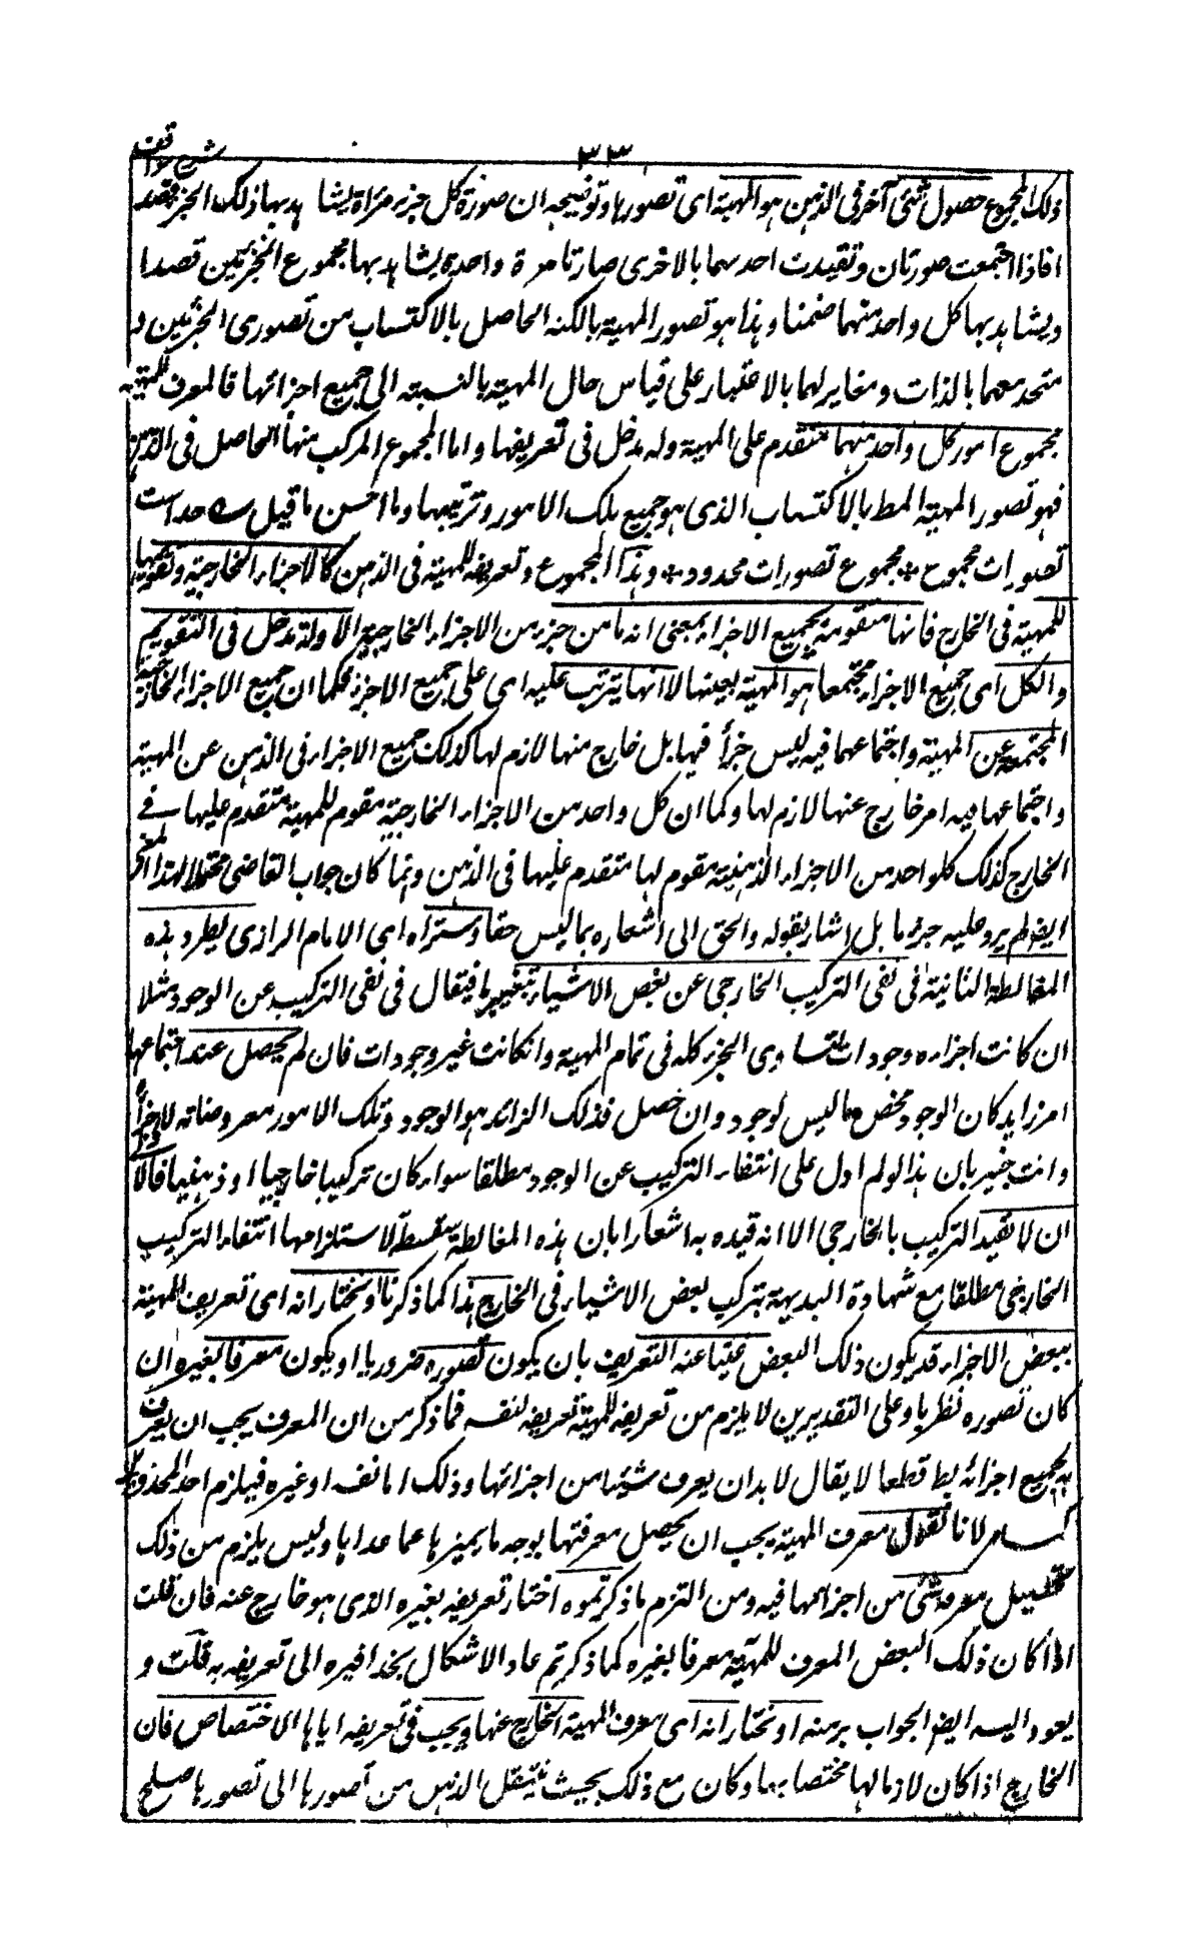 شرح مواقف
٣٣
ذلك المجموع حصول شئ آخر فى الذهن هو المهية اى تصورها وتوضيحه ان صورة كل جزء مرآة يشاهد بها ذلك الجزء قصدا
فاذا اجتمعت صورتان وتقيدت احدهما بالاخرى صارتا مرة واحدة يشاهد بها مجموع الجزئين قصدا
ويشاهد بها كل واحد منهما ضمنا وهذا هو تصور المهية بالكنه الحاصل بالاكتساب من تصورى الجزئين و
متحد معهما بالذات ومغاير لهما بالاعتبار على قياس حال المهية بالنسبة الى جميع اجزائها فالمعرف للمهية
مجموع امور كل واحد منها متقدم على المهية وله مدخل فى تعريفها واما المجموع المركب منها الحاصل فى الذهن
فهو تصور المهية المط بالاكتساب الذى هو جميع تلك الامور وترتيبها وما احسن ما قيل حد است
تصورات مجموع * مجموع تصورات محدود * وهذا المجموع وتعريفه للمهية فى الذهن كالاجزاء الخارجية وتقويمها
للمهية فى الخارج فانها متقومة بجميع الاجزاء بمعنى انه ما من جزء من الاجزاء الخارجية الا وله مدخل فى التقويم
والكل اى جميع الاجزاء مجتمعا هو المهية بعينها لا انها يترتب عليه اى على جميع الاجزاء فكما ان جميع الاجزاء الخارجية
المجتمعة عين المهية واجتماعها فيه ليس جزأ فيها بل خارج منها لازم لها كذلك جميع الاجزاء فى الذهن عن المهية
واجتماعها فيه امر خارج عنها لازم لها وكما ان كل واحد من الاجزاء الخارجية مقوم للمهية متقدم عليها فى
الخارج كذلك كل واحد من الاجزاء الذهنية مقوم لها متقدم عليها فى الذهن ولما كان جواب القاضى محتملا لهذا المعنى
ايضا لم يرد عليه جزما بل اشار بقوله والحق الى اشعاره بما ليس حقا وستراه اى الامام الرازى يطرد هذه
المغالطة الثانية فى نفى التركيب الخارجى عن بعض الاشياء بتغيير ما فيقال فى نفى التركيب عن الوجود مثلا
ان كانت اجزاءه وجودات لتساوى الجزء كله فى تمام المهية وان كانت غير وجودات فان لم يحصل عند اجتماعها
امر زايد كان الوجود محض ما ليس لوجود وان حصل فذلك الزائد هو الوجود وتلك الامور معروضاته لا اجزاؤه
وانت خبير بان هذا لو لم ادل على انتفاء التركيب عن الوجود مطلقا سواء كان تركيبا خارجيا او ذهنيا فالاولى
ان لا يقيد التركيب بالخارجى الا انه قيده به اشعارا بان هذه المغالطة لاستلزامها انتفاء التركيب
الخارجى مطلقا مع شهادة البديهة بتركب بعض الاشياء فى الخارج هذا كما ذكرنا او نختار انه اى تعريف المهية
ببعض الاجزاء قد يكون ذلك البعض غنيا عنه التعريف بان يكون تصوره ضروريا او يكون معرفا بغيره ان
كان تصوره نظريا وعلى التقديرين لا يلزم من تعريفه للمهية تعريفه لنفسه فما ذكر من ان المعرف يجب ان يعرف
جميع اجزائه بط قطعا لا يقال لا بد ان يعرف شيئا من اجزائها وذلك اما نفسه او غيره فيلزم احد المحذورين
لانا نقول معرف المهية يجب ان يحصل معرفتها بوجه ما يميزها عما عداها وليس يلزم من ذلك
تحصيل معرفة شئ من اجزائها فيه ومن التزم ما ذكرتموه اختار تعريفه بغيره الذى هو خارج عنه فان قلت
اذا كان ذلك البعض المعرف للمهية معرفا بغيره كما ذكرتم عاد الاشكال بحذافيره الى تعريفه به قلت و
يعود اليه ايضا الجواب برمته او نختار انه اى معرف المهية الخارج عنها ويجب فى تعريفه اياها الاختصاص فان
الخارج اذا كان لازما لها مختصا بها وكان مع ذلك بحيث ينتقل الذهن من تصورها الى تصورها صلح